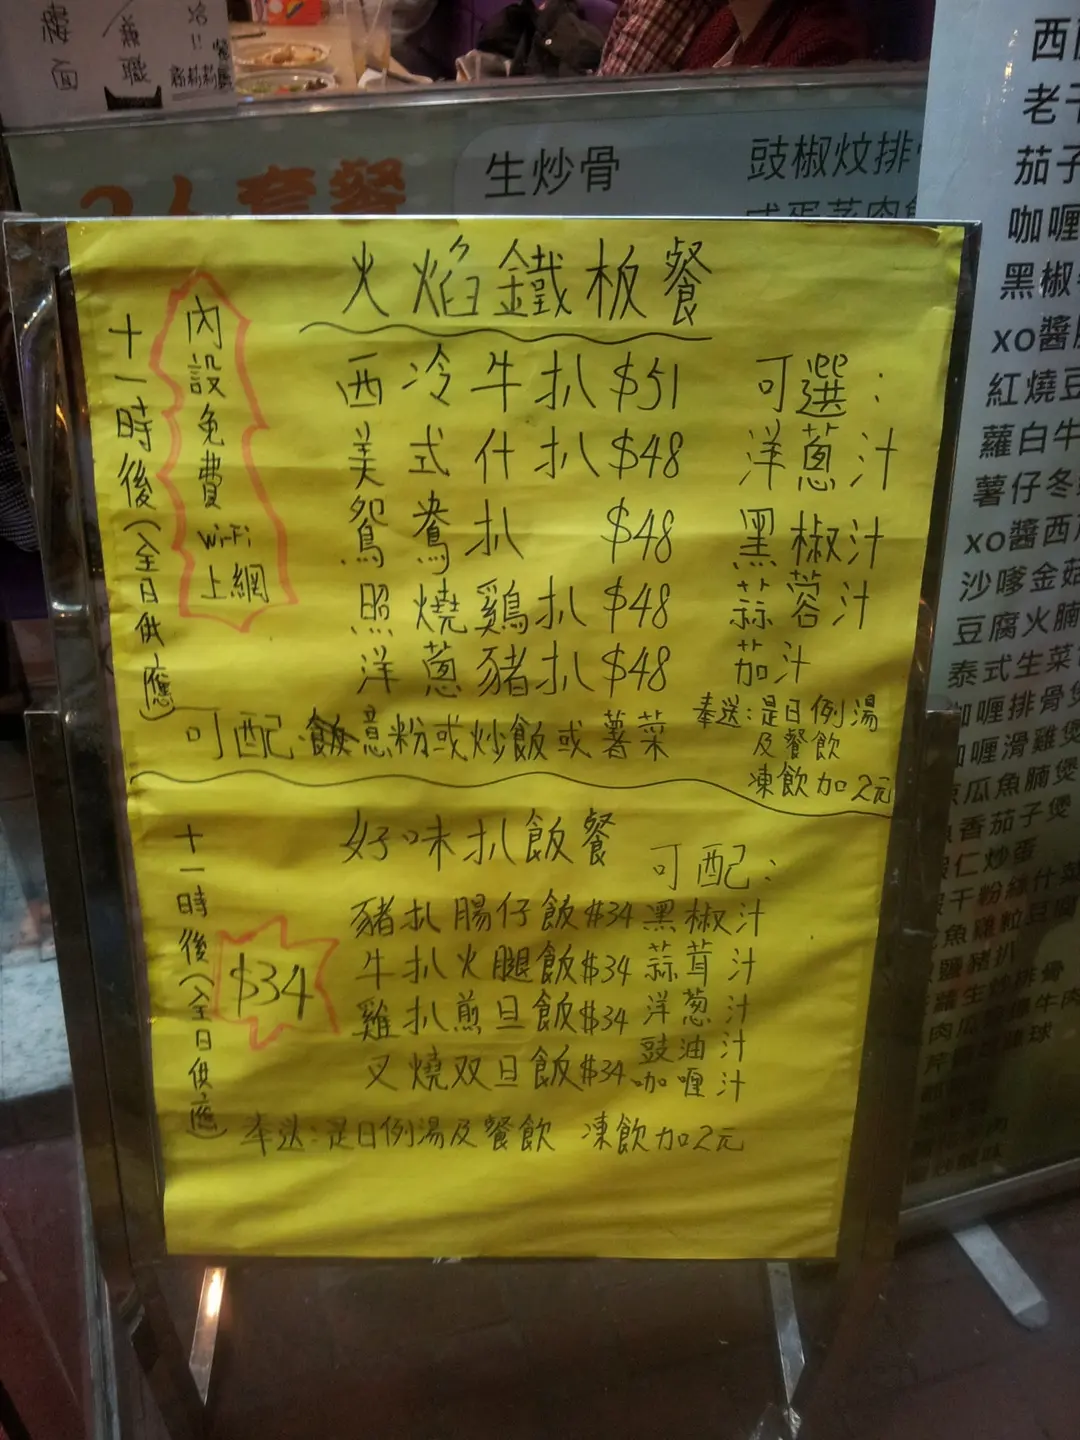 樓面
兼職
洽!!
生炒骨
豉椒炆排
2人套餐
火焰鐵板餐
十一時後(全日供應)
內設免費
Wi-Fi
上網
西冷牛扒$51
美式什扒$48
鴛鴦扒 $48
照燒鷄扒$48
洋蔥豬扒$48
可選:
洋蔥汁
黑椒汁
蒜蓉汁
茄汁
可配:飯意粉或炒飯或薯菜
奉送:是日例湯
及餐飲
凍飲加2元
十一時後(全日供應)
好味扒飯餐
$34
豬扒腸仔飯$34
牛扒火腿飯$34
雞扒煎旦飯$34
叉燒双旦飯$34
可配:
黑椒汁
蒜茸汁
洋葱汁
豉油汁
咖喱汁
奉送:是日例湯及餐飲 凍飲加2元
西
老干
茄子
咖喱
黑椒
xo醬
紅燒豆
蘿白牛
薯仔冬
xo醬西
沙嗲金菇
豆腐火腩
泰式生菜
咖喱排骨煲
咖喱滑雞煲
涼瓜魚腩煲
魚香茄子煲
蝦仁炒蛋
蝦干粉絲什菜
鹹魚雞粒豆腐
椒鹽豬扒